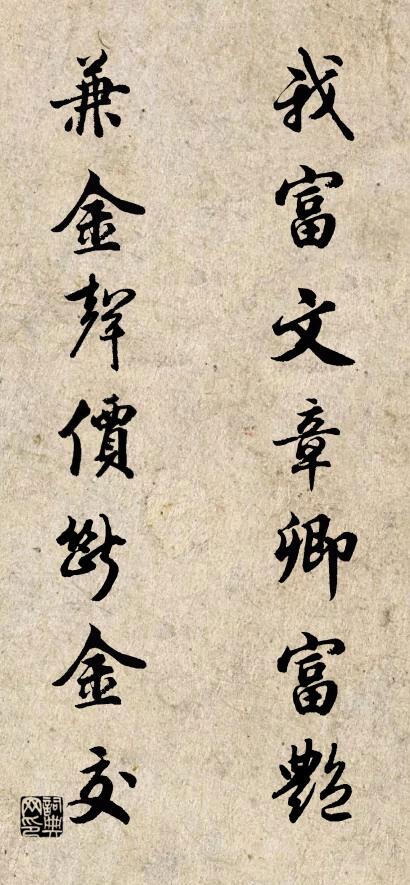 我富文章卿富艷
兼金聲價斷金交
詞典网印